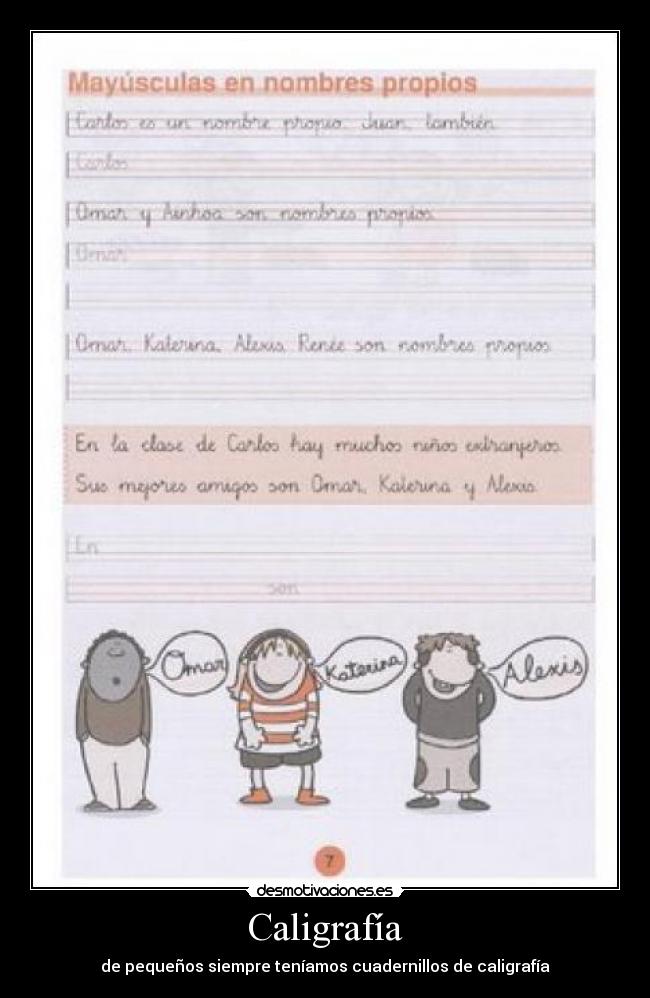 Mayúsculas en nombres propios
Carlos es un nombre propio. Juan, también.
Carlos
Omar y Ainhoa son nombres propios.
Omar
Omar, Katerina, Alexis, Renée son nombres propios.
En la clase de Carlos hay muchos niños extranjeros.
Sus mejores amigos son Omar, Katerina y Alexis.
En
son
Omar
Katerina
Alexis
7
desmotivaciones.es
Caligrafía
de pequeños siempre teníamos cuadernillos de caligrafía